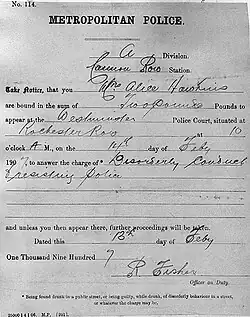 No. 114.
METROPOLITAN POLICE.
A Division.
Cannon Row Station.
Take Notice, that you Mrs Alice Hawkins
are bound in the sum of Two Pounds Pounds to
appear at the Westminster Police Court, situated at
Rochester Row at 10
o'clock A M., on the 14th day of Feby
1907, to answer the charge of Disorderly Conduct
& resisting police
and unless you then appear there, further proceedings will be taken.
Dated this 13th day of Feby
One Thousand Nine Hundred 7
R Fisher
Officer on Duty.
* Being found drunk in a public street, or being guilty, while drunk, of disorderly behaviour in a street,
or whatever the charge may be.
M.P.